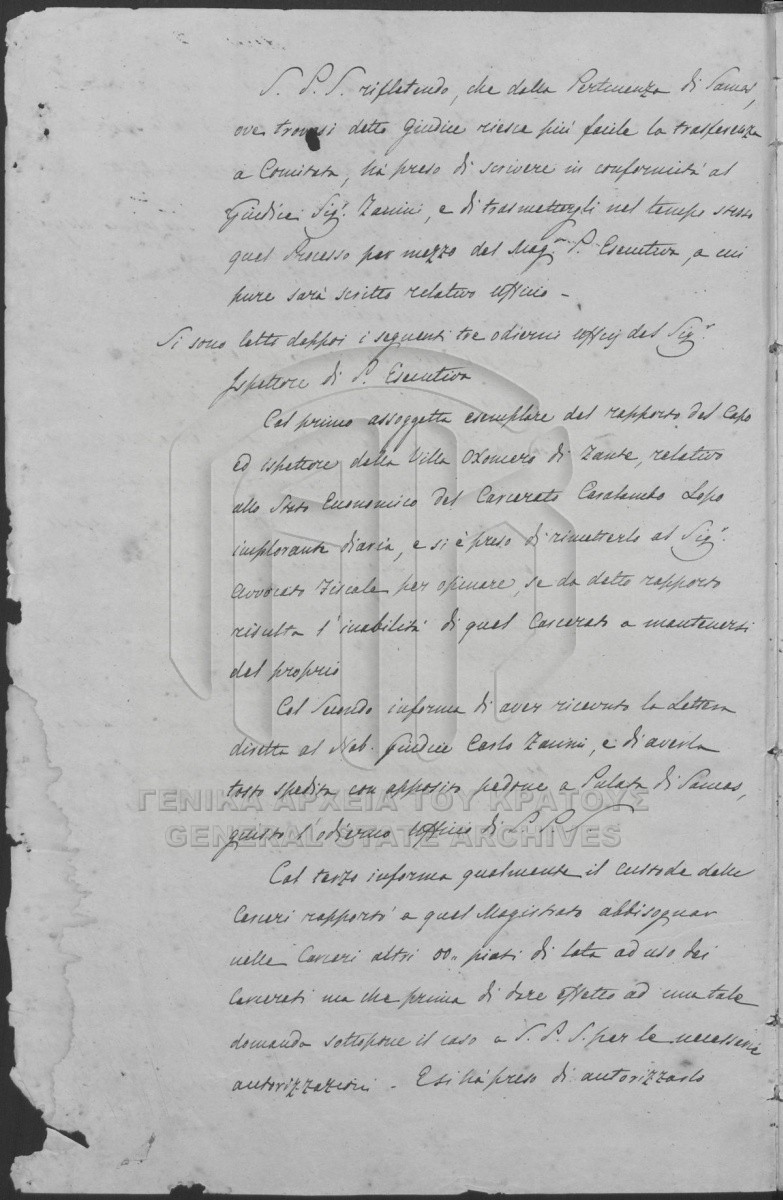 S. P. S. rifletendo, che dalla Pertinenza di Samos,
ove trovasi detto Giudice riesce più facile la trasferenza
a Comitata, hà preso di scrivere in conformità al
Giudice Sig.r Zanini, e di trasmettergli nel tempo stesso
quel Processo per mezzo del Mag.n P. Esecutiva, a cui
pure sarà scritto relativo officio -
Si sono letti dappoi i seguenti tre odierni officj del Sig.r
Ispettore di P. Esecutiva
Col primo assoggetta esemplare del rapporto del Capo
ed ispettore della Villa Oxomera di Zante, relativo
allo Stato Economico del Carcerato Lopo
implorante diaria, e si è preso di rimetterlo al Sig.r
Avvocato Fiscale per opinare, se da detto rapporto
risulta l'inabilità di quel Carcerato a mantenersi
del proprio
Col Secondo informa di aver ricevuto la Lettera
diretta al Nob. Giudice Carlo Zanini, e di averla
tosto spedita con apposito pedone a Pulata di Samos,
giusto l'odierno officio di S. P. S.
Col terzo informa qualmente il custode delle
Carceri rapportò a quel Magistrato abbisognar
nelle Carceri altri piati di lata ad uso dei
Carcerati ma che prima di dare effetto ad una tale
domanda sottopone il caso a S. P. S. per le necessarie
autorizzazioni - E si hà preso di autorizzarlo
ΓΕΝΙΚΑ ΑΡΧΕΙΑ ΤΟΥ ΚΡΑΤΟΥΣ
GENERAL STATE ARCHIVES